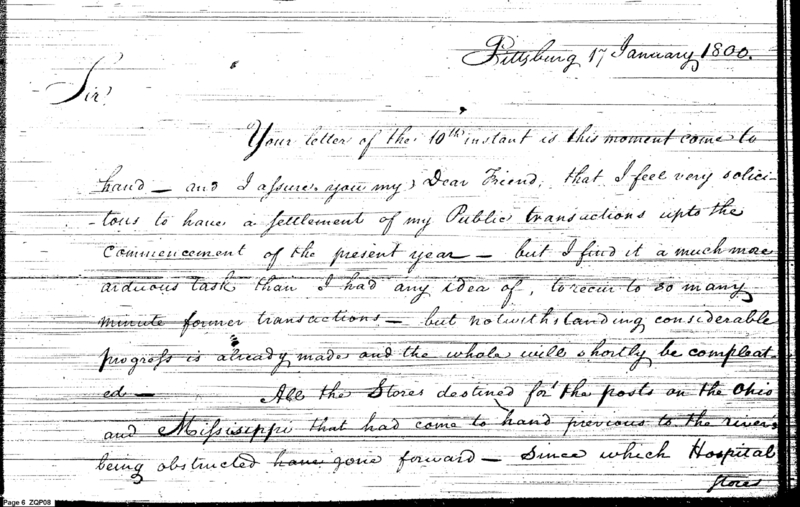 Pittsburg 17 January 1800.
Sir,
Your letter of the 10th instant is this moment come to
hand — and I assure you my Dear Friend, that I feel very solici-
-tous to have a settlement of my Public transactions upto the
Commencement of the present year — but I find it a much more
arduous task than I had any idea of, to recur to so many
minute former transactions — but notwithstanding considerable
progress is already made and the whole will shortly be compleat-
ed — All the Stores destined for the posts on the Ohio
and Mississippi that had come to hand previous to the river's
being obstructed have gone forward — Since which Hospital
Stores
Page 6 ZQP08